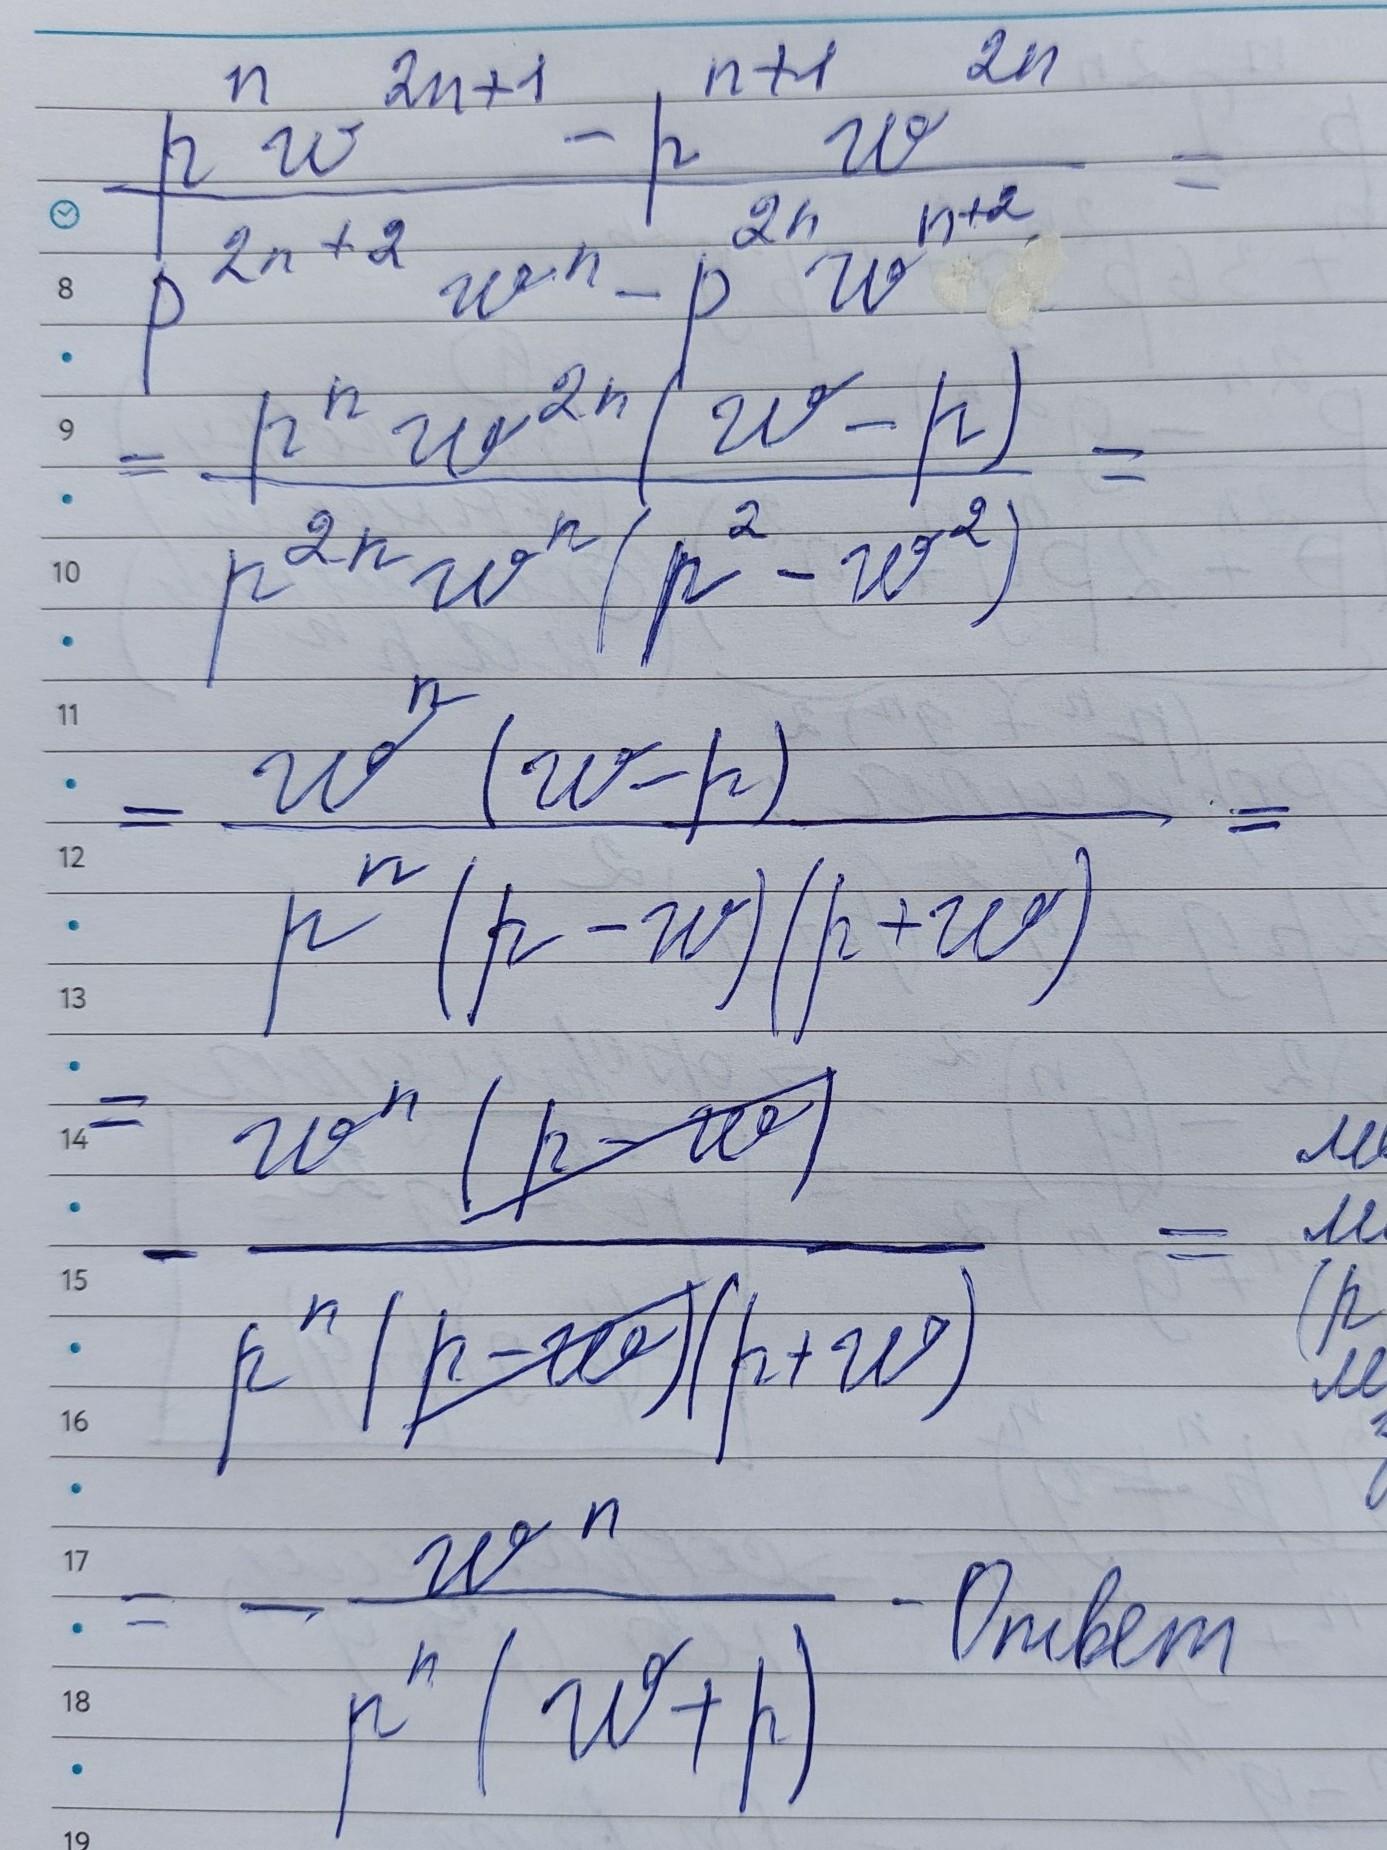 p^n w^{2n+1} - p^{n+1} w^{2n} =
8 p^{2n+2} w^n - p^{2n} w^{n+2}
9 = p^n w^{2n} (w - p) =
10 p^{2n} w^n (p^2 - w^2)
11
= w^n (w - p) =
12
p^n (p - w)(p + w)
13
14 = w^n (p - w)
- =
15
p^n (p - w)(p + w)
16
17 w^n
= - - Ответ
18 p^n (w + p)
19
(p